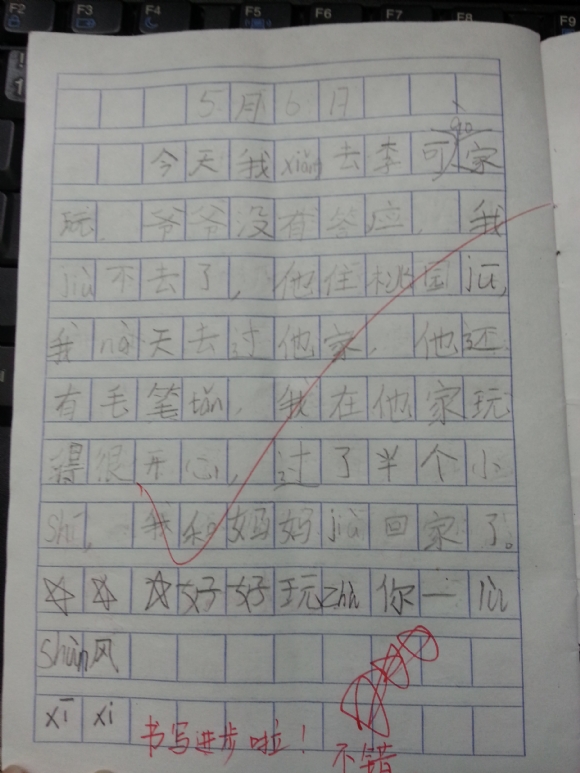 5月6日
gao
今天我xiǎn去李可家
玩.爷爷没有答应.我
jiù不去了,他住桃园jū,
我nà天去过他家.他还
有毛笔tǎn.我在他家玩
得很开心,过了半个小
shí.我和妈妈jiù回家了。
☆☆☆好好玩zhù你一lù
shùn风
xī xi
书写进步啦!
不错